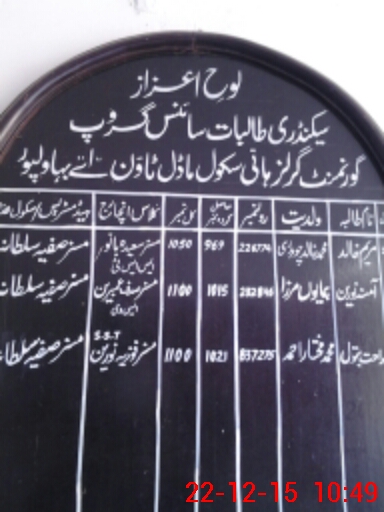 لوحِ اعزاز
سیکنڈری طالبات سائنس گروپ
گورنمنٹ گرلز ہائی سکول ماڈل ٹاؤن اے بہاولپور
نام طالبہ ولدیت رولنمبر حاصل کردہ نمبر کل نمبر کلاس انچارج ہیڈمسٹریس سکول ھذا
مریم خالد محمد خالد چوہدری 226774 969 1050 مسز سعیدہ بانو مسز صفیہ سلطانہ
ایس ایس ٹی
آمنہ نورین ہمایوں مرزا 1015 1100 مسز مسز صفیہ سلطانہ
S-S-T
بتول محمد مختار احمد 637275 1021 1100 مسز فوزیہ نورین مسز صفیہ سلطانہ
22-12-15 10:49